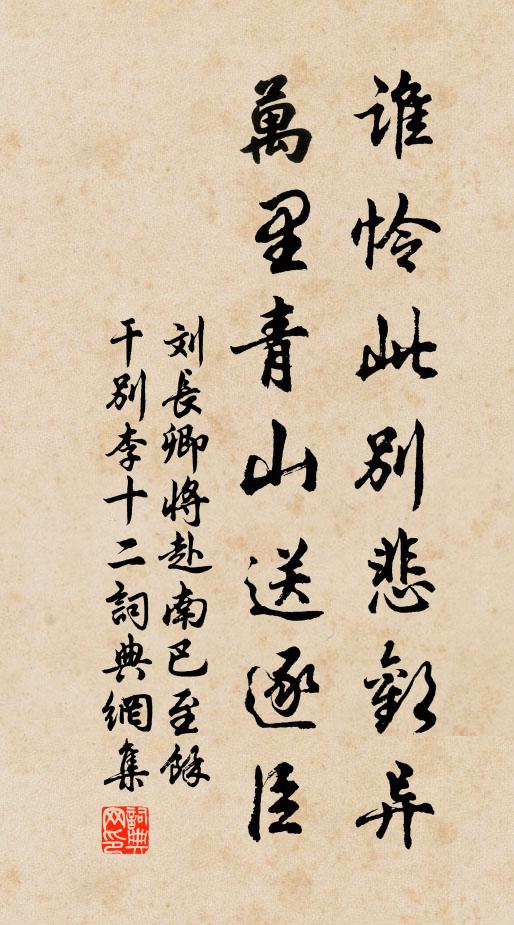 谁怜此别悲歡异
萬里青山送逐臣
刘長卿将赴南巴至餘
干别李十二詞典網集
詞典网印